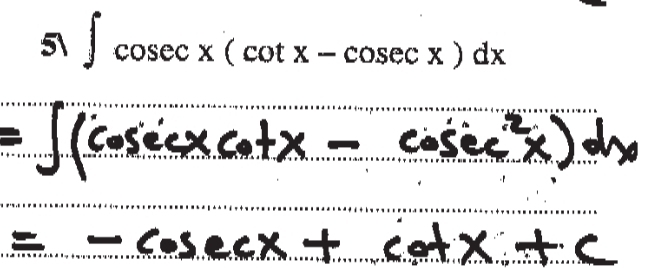 5\ ∫ cosec x ( cot x – cosec x ) dx
= ∫(cosecx cotx – cosec²x) dx
= – cosecx + cotx + c